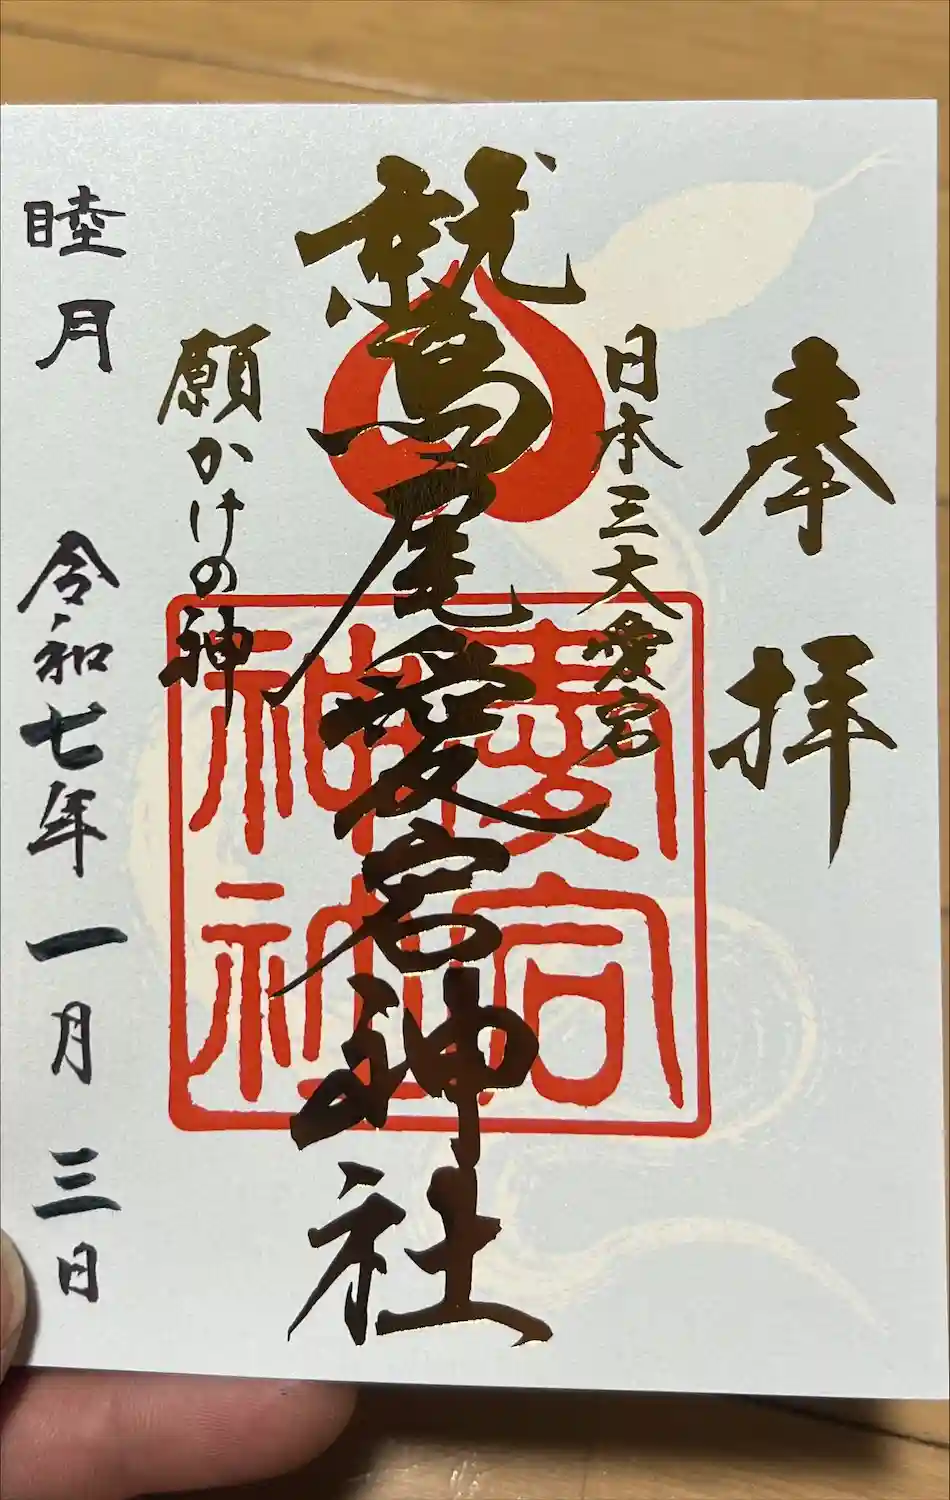 奉拝
日本三大愛宕
鷲尾愛宕神社
愛宕
神社
願かけの神
睦月 令和七年一月三日